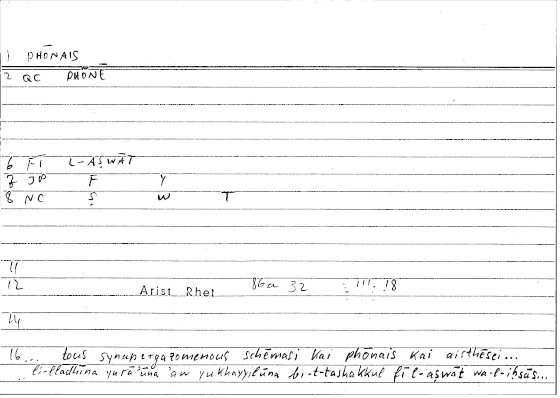 1 PHŌNAIS
2 QC PHŌNĒ
6 FĪ L-AṢWĀT
7 JP F Y
8 NC Ṣ W T
11
12 Arist Rhet 86a 32 111. 18
14
16... tous synapergazomenous schēmasi kai phōnais kai aisthēsei...
li-lladhīna yurā'ūna 'aw yukhayyilūna bi-t-tashakkul fī l-aṣwāt wa-l-iḥsās...